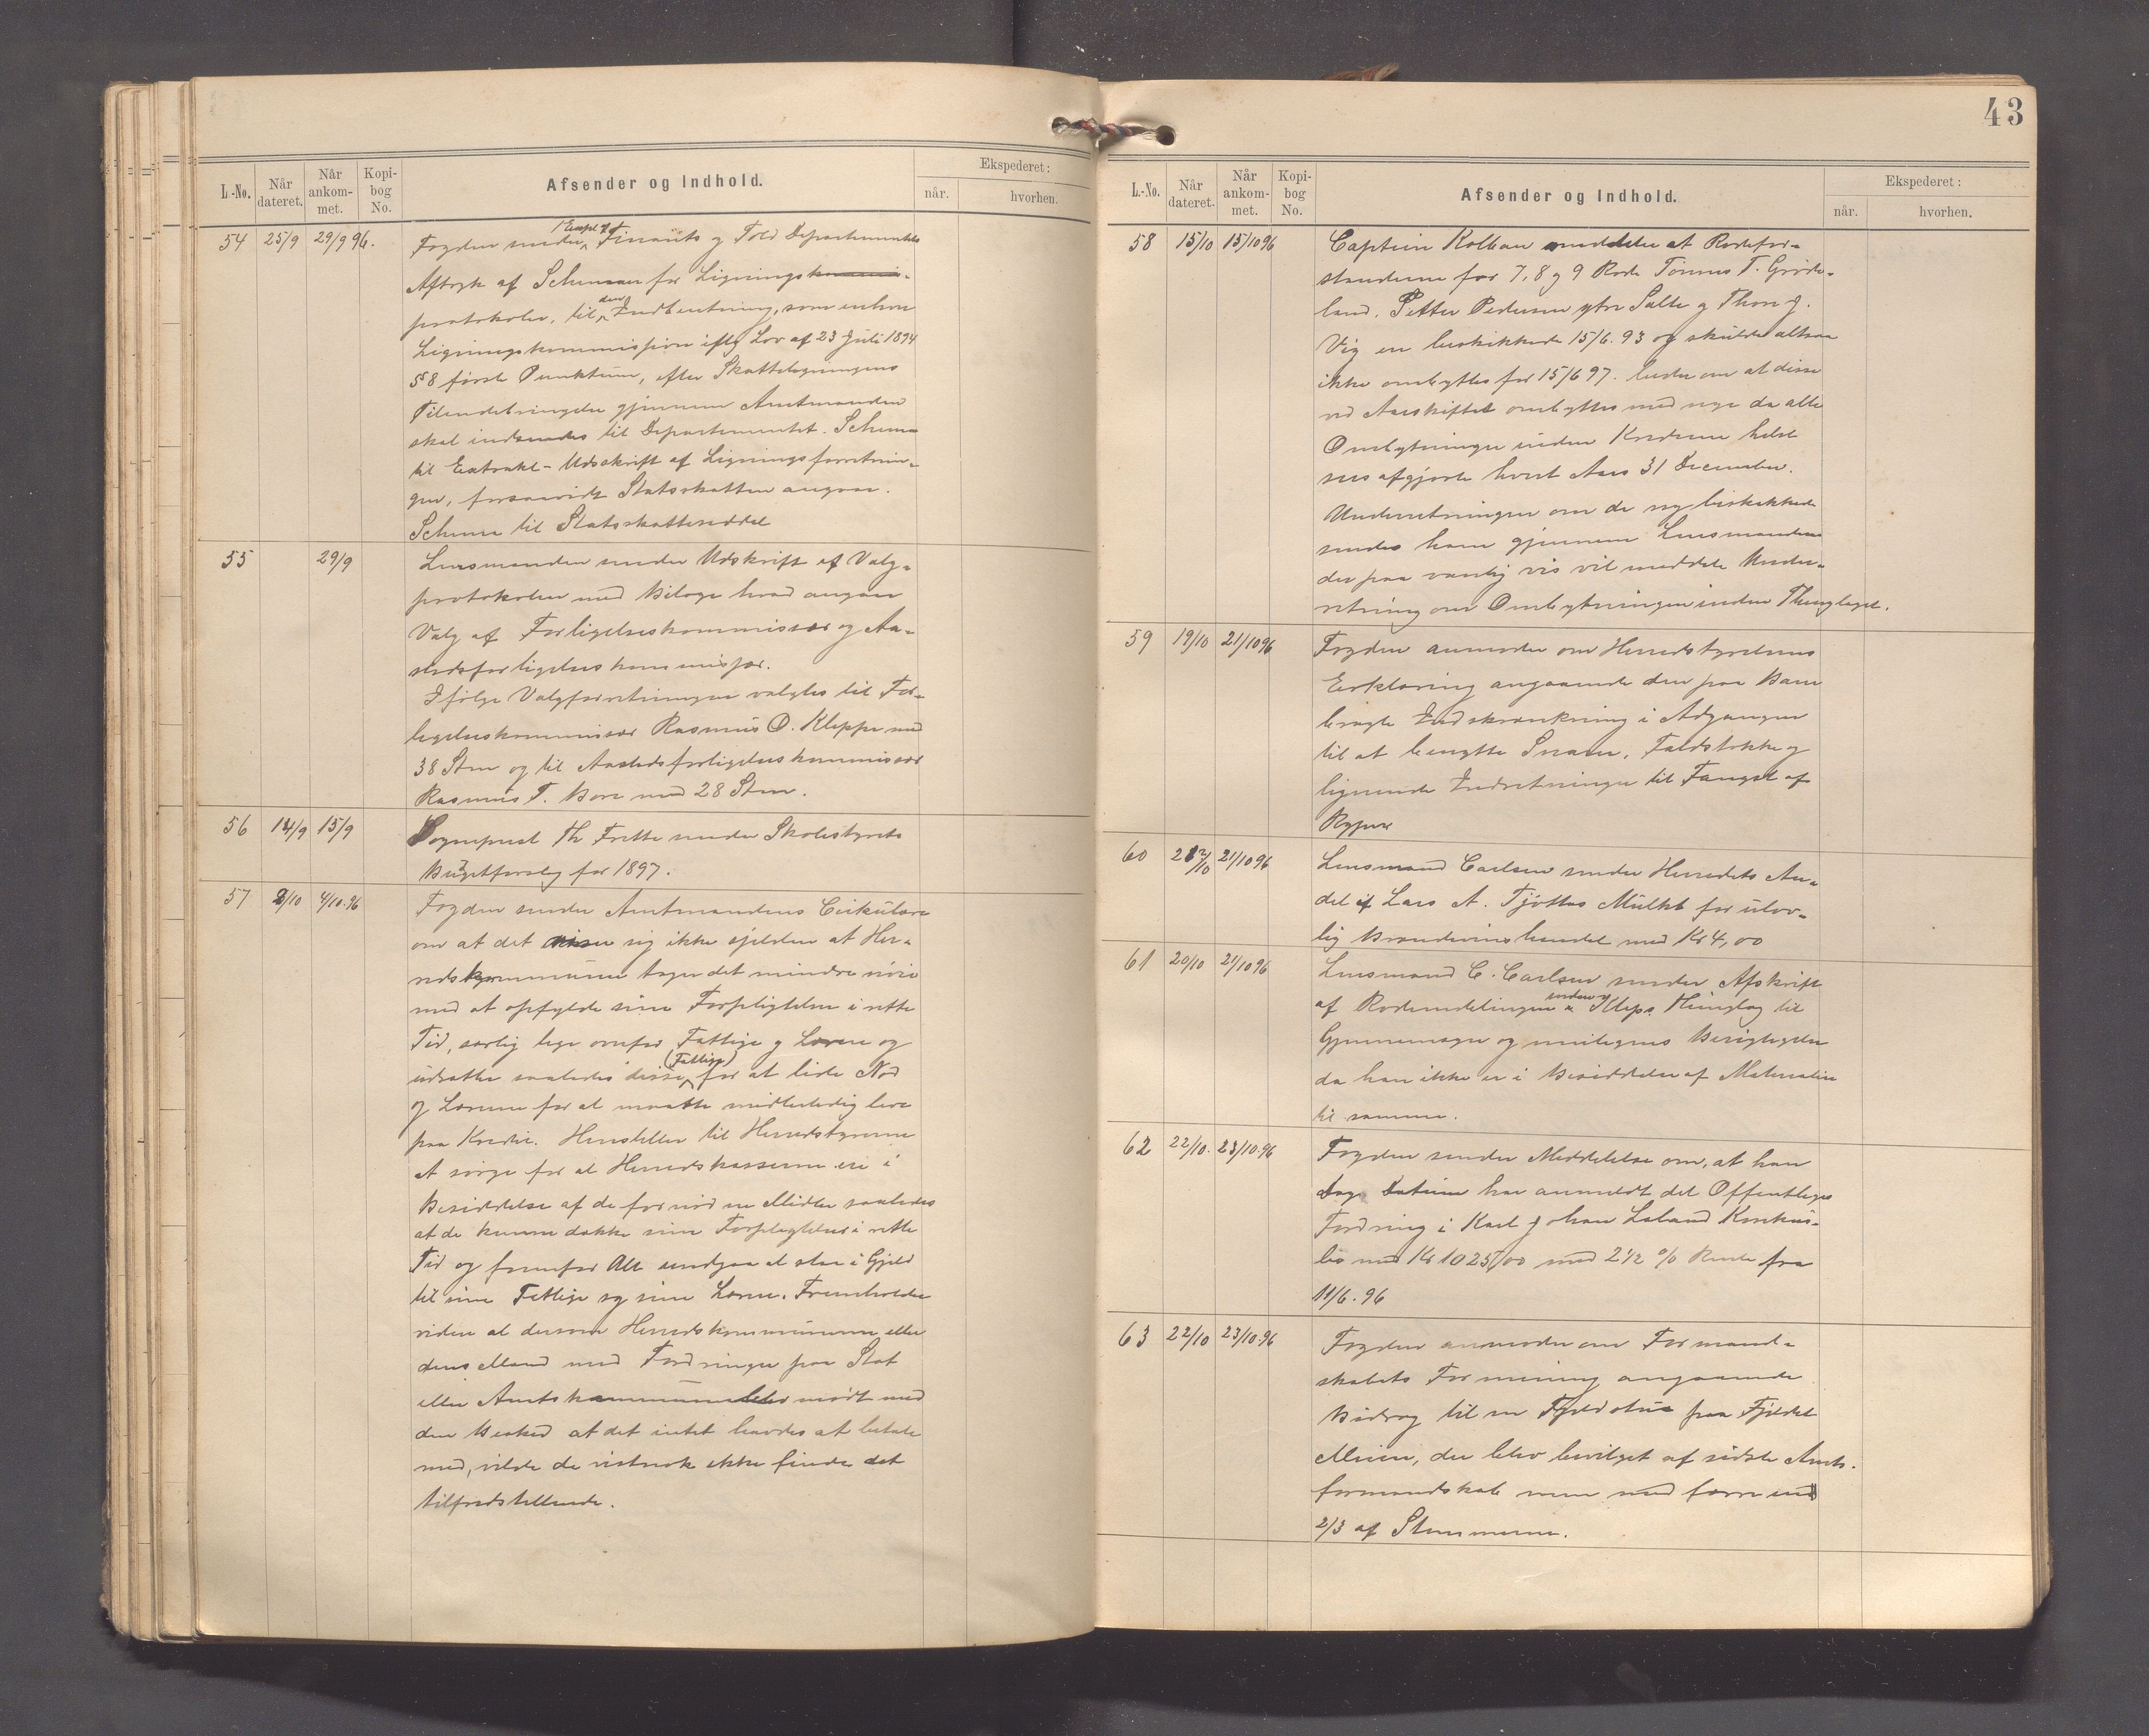 43
L.-No. Når dateret. Når ankommet. Kopibog No. Afsender og Indhold. Ekspederet: når. hvorhen.
54 25/9 29/9 96. Fogden sender 1 Expl af Finants og Told Departementets
Aftryk af Schema for Lignings
protokoler, til den Indberetning, som enhver
Ligningskommission iflg Lov af 23 Juli 1894
§8 første Punktum, efter Skatteligningens
Tilendebringelse gjennem Amtmanden
skal indsendes til Departementet. Schema
til Extrakt-Udskrift af Ligningsforretnin-
gen, forsaavidt Statsskatten angaar.
Schema til Statsskatteseddel
55 29/9 Lensmanden sender Udskrift af Valg-
protokolen med Bilage hvad angaar
Valg af Forligelseskommissær og Aa-
stedsforligelseskommissær.
Ifølge Valgforretningen valgtes til For-
ligelseskommissær Rasmus O. Kleppe med
38 Stm og til Aastedsforligelseskommissær
Rasmus T. Bore med 28 Stm.
56 14/9 15/9 Sogneprest Th Frette sender Skolestyrets
Budgetforslag for 1897.
57 2/10 4/10.96 Fogden sender Amtmandens Cirkulære
om at det viser sig ikke sjelden at Her-
redskommuner tager det mindre nøie
med at opfylde sine Forpligtelser i rette
Tid, særlig lige overfor Fattige og Lærere og
udsætter saaledes disse (Fattige) for at lide Nød
og Lærerne for at maatte midlertidig leve
paa Kredit. Henstiller til Herredstyrerne
at sørge for at Herredskasserne er i
Besiddelse af de fornødne Midler saaledes
at de kunne dække sine Forpligtelser i rette
Tid og fremfor Alt undgaa at staa i Gjeld
til sine Fattige og sine Lærere. Fremholder
videre at dersom Herredskommunerne eller
dens Mænd med Fordringer paa Stat
eller Amtskommune blev mødt med
den Besked at det intet havdes at betale
med, vilde de vistnok ikke finde det
tilfredstillende.
L.-No. Når dateret. Når ankommet. Kopibog No. Afsender og Indhold. Ekspederet: når. hvorhen.
58 15/10 15/10 96 Captein Rolban meddeler at Rodefor-
standerne for 7, 8 og 9 Rode Tønnes T. Grøde-
land, Petter Pedersen ytre Salte og Thore J.
Vig er beskikkede 15/6.93 og skulde altsaa
ikke ombyttes før 15/6 97. beder om at disse
ved Aarskiftet ombyttes med nye da alle
Ombytninger inden Kredsene helst
sees afgjorte hvert Aars 31 December.
Underretningen om de ny beskikkede
sendes ham gjennem Lensmanden
der paa vanlig vis vil meddele Under-
retning om Ombytningen inden Thinglaget.
59 19/10 21/10 96 Fogden anmoder om Herredstyrelsens
Erklæring angaaende den paa Bane
bragte Indskrænkning i Adgangen
til at benytte Snarer, Faldstokke og
lignende Indretninger til Fangst af
Ryper
60 21/10 96 Lensmand Carlsen sender Herredets An-
del af Lars A. Tjøttas Mulkt for ulov-
lig Brændevinshandel med Kr 4,00
61 20/10 21/10 96 Lensmand C. Carlsen sender Afskrift
af Rodeindelingen inden Kleps Thinglag til
Gjennemsyn og muligens Berigtigelse
da han ikke er i Besiddelse af Materialer
til samme.
62 22/10. 23/10.96 Fogden sender Meddelelse om, at han
Dags Datum har anmeldt det Offentliges
Fordring i Karl Johan Laland Konkurs-
bo med Kr 1025,00 med 2 1/2 % Rente fra
11/6.96
63 22/10 23/10.96 Fogden anmoder om Formand-
skabets Formening angaaende
Bidrag til en Fjeldstue paa Fjeldet
Meien, der blev bevilget af sidste Amts-
formandskab men med færre end
2/3 af Stemmerne.